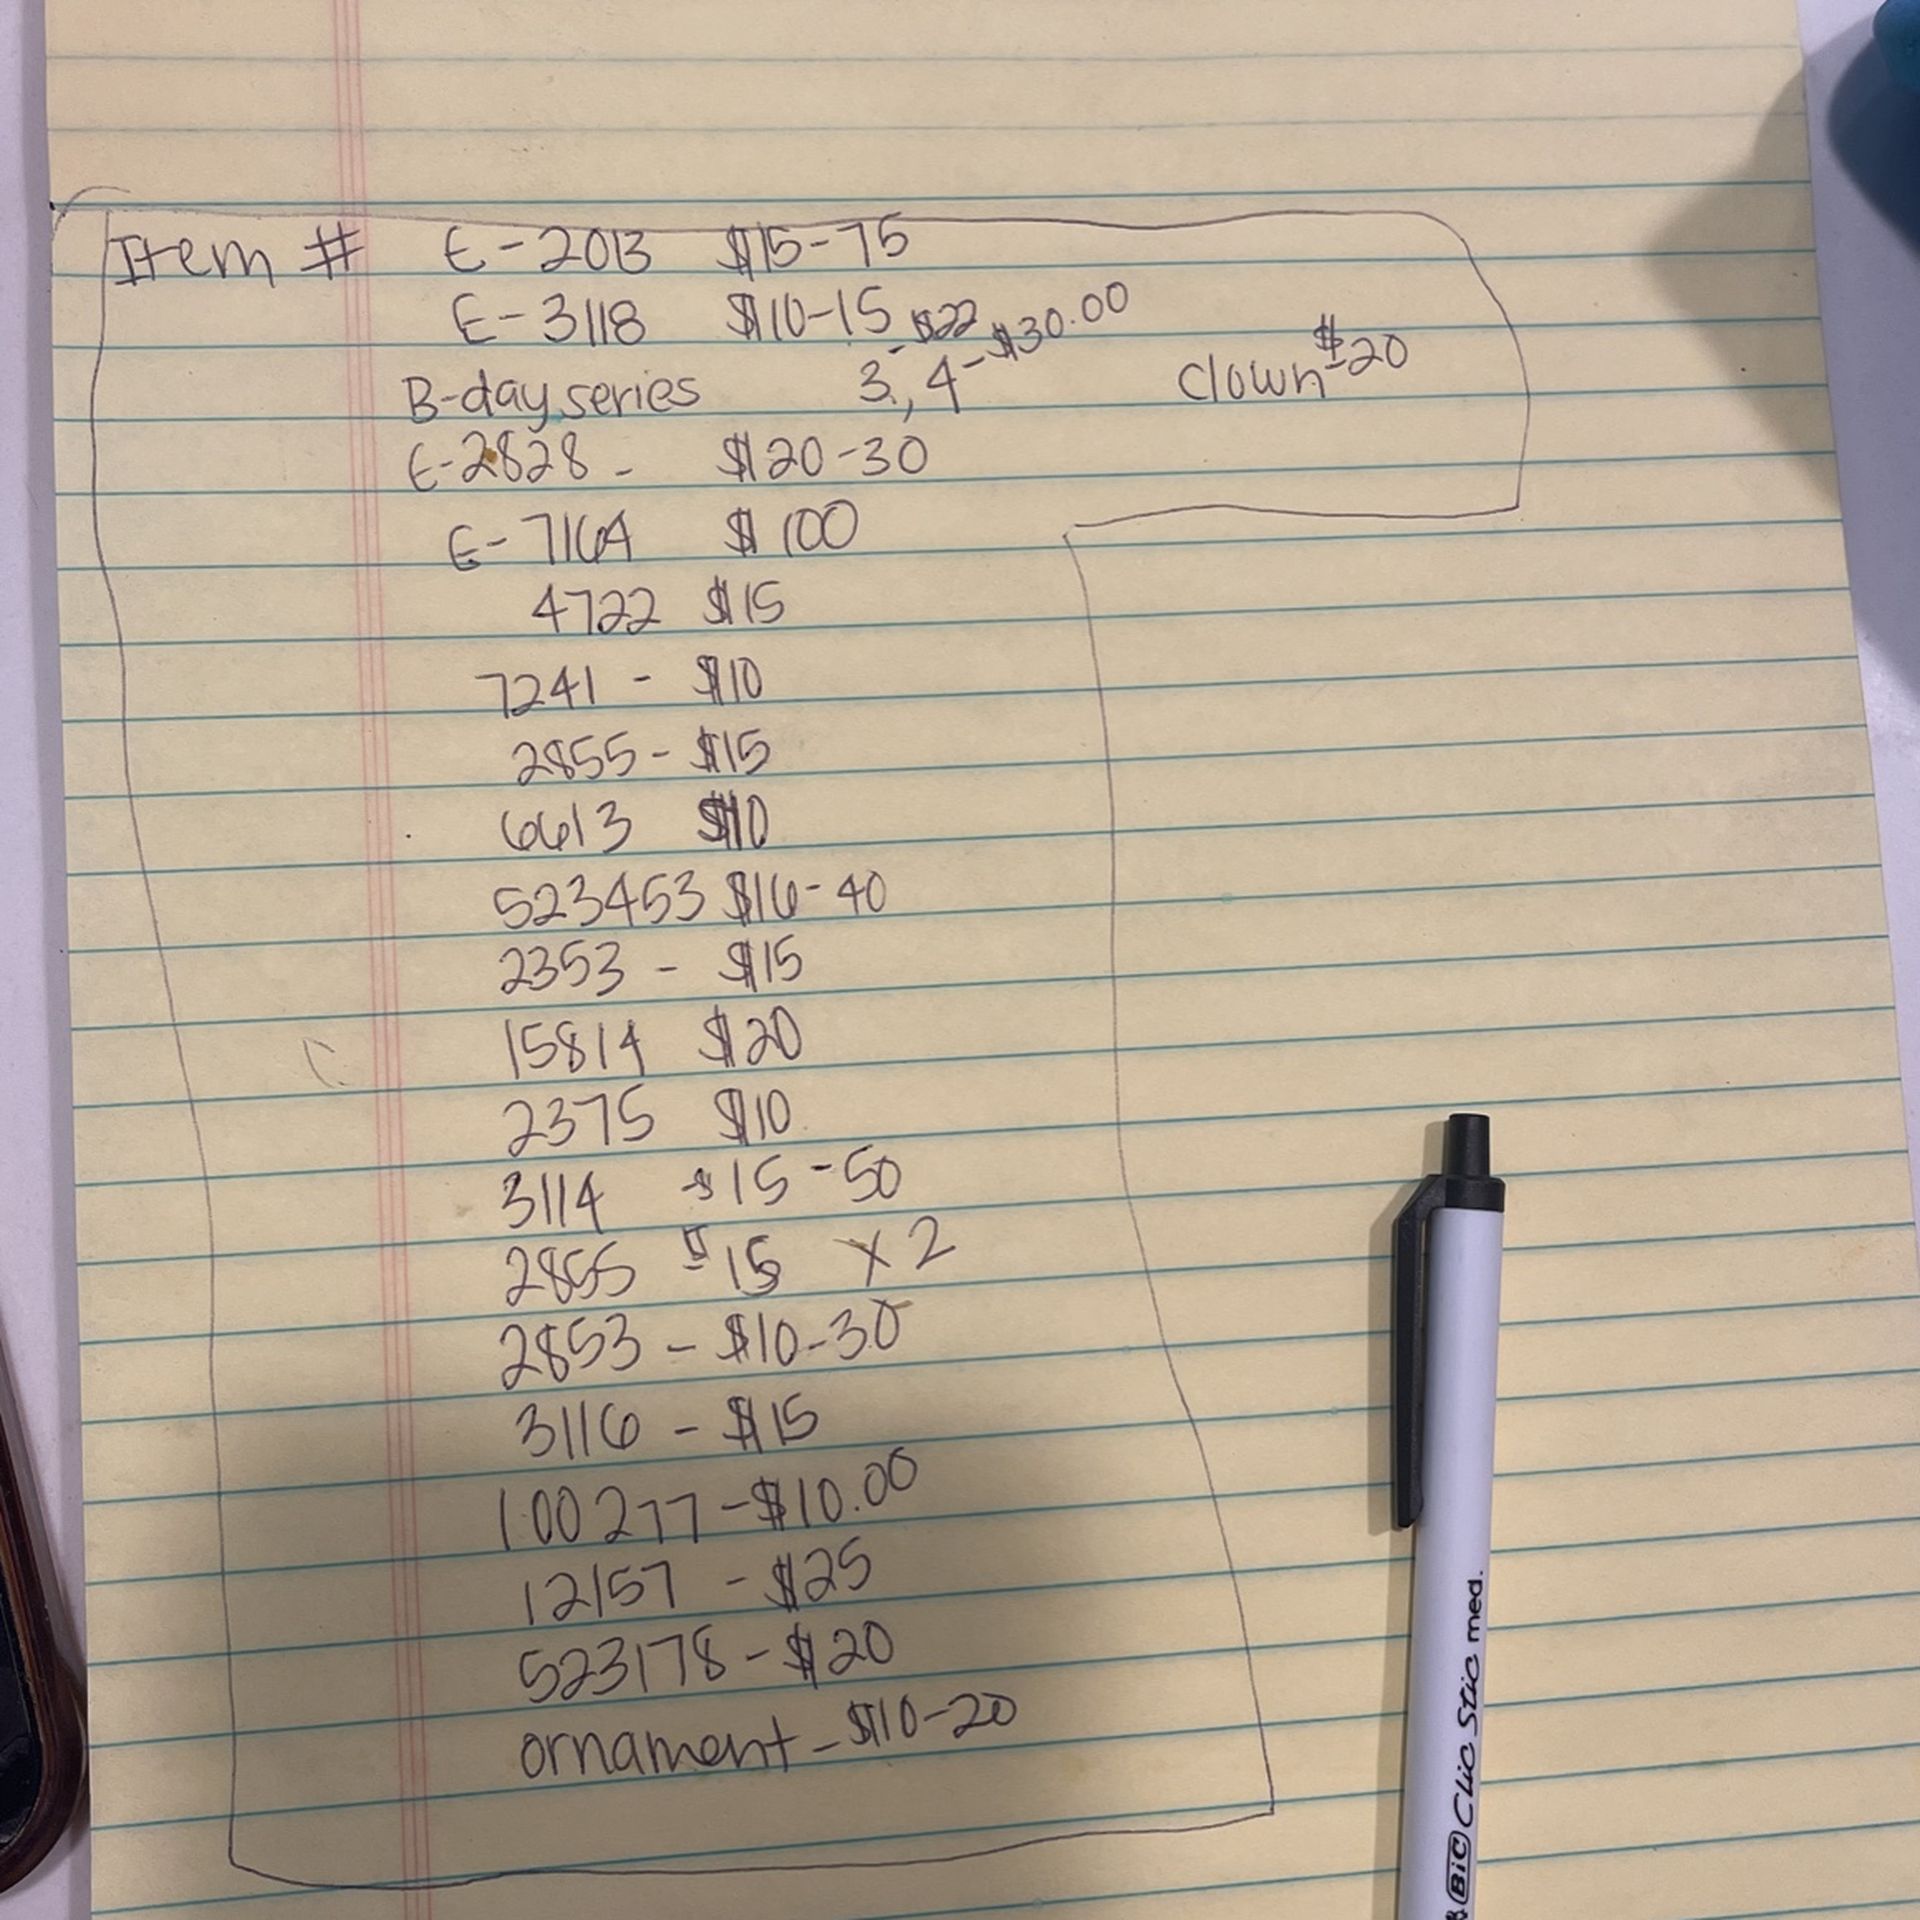 Item # E-2013 $15-75
E-3118 $10-15
B-day series 3-$22, 4-$30.00 Clown-$20
E-2828 - $20-30
E-7164 $100
4722 $15
7241 - $10
2855 - $15
6613 $10
523453 $16-40
2353 - $15
15814 $20
2375 $10
3114 $15-50
2855 $15 x 2
2853 - $10-30
3116 - $15
100277 - $10.00
12157 - $25
523178 - $20
ornament - $10-20
BIC Clic Stic med.